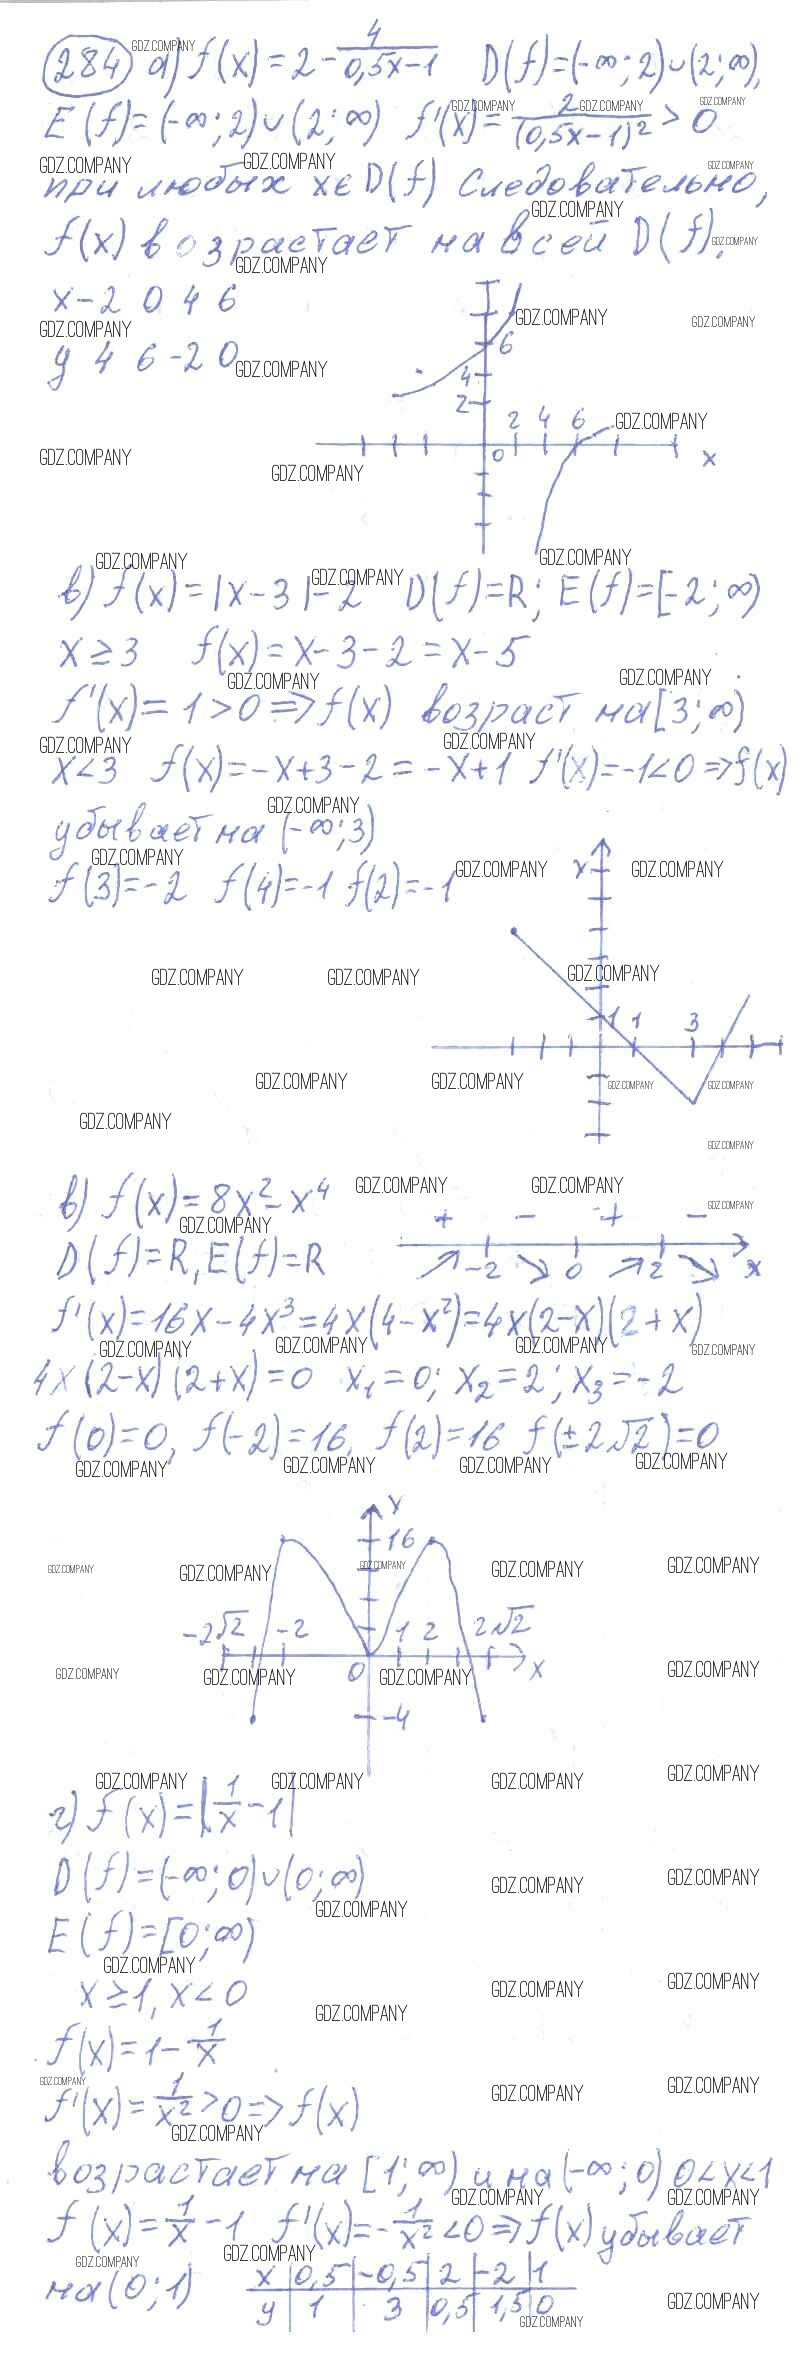 284 а) f(x) = 2 - 4/(0,5x-1) D(f)=(-∞; 2)∪(2; ∞),
E(f)=(-∞; 2)∪(2; ∞) f'(x) = 2/(0,5x-1)² > 0
при любых x∈D(f) Следовательно,
f(x) возрастает на всей D(f).
x -2 0 4 6
y 4 6 -2 0
6
4
2
2 4 6
0 x
в) f(x) = |x-3|-2 D(f)=R; E(f)=[-2; ∞)
x≥3 f(x) = x-3-2 = x-5
f'(x) = 1>0 => f(x) возраст на [3; ∞)
x<3 f(x) = -x+3-2 = -x+1 f'(x)=-1<0 => f(x)
убывает на (-∞; 3)
f(3)=-2 f(4)=-1 f(2)=-1
Y
1 1 3
в) f(x) = 8x² - x⁴
+ - + -
D(f)=R, E(f)=R
-2 0 2 x
f'(x) = 16x - 4x³ = 4x(4-x²) = 4x(2-x)(2+x)
4x(2-x)(2+x) = 0 x₁ = 0; x₂ = 2; x₃ = -2
f(0)=0, f(-2)=16, f(2)=16 f(±2√2)=0
Y
16
-2√2 -2 1 2 2√2
0 x
-4
г) f(x) = |1/x - 1|
D(f)=(-∞; 0)∪(0; ∞)
E(f)=[0; ∞)
x≥1, x<0
f(x) = 1 - 1/x
f'(x) = 1/x² > 0 => f(x)
возрастает на [1; ∞) и на (-∞; 0) 0<x<1
f(x) = 1/x - 1 f'(x) = -1/x² < 0 => f(x) убывает
на (0; 1)
x 0,5 -0,5 2 -2 1
y 1 3 0,5 1,5 0
GDZ.COMPANY